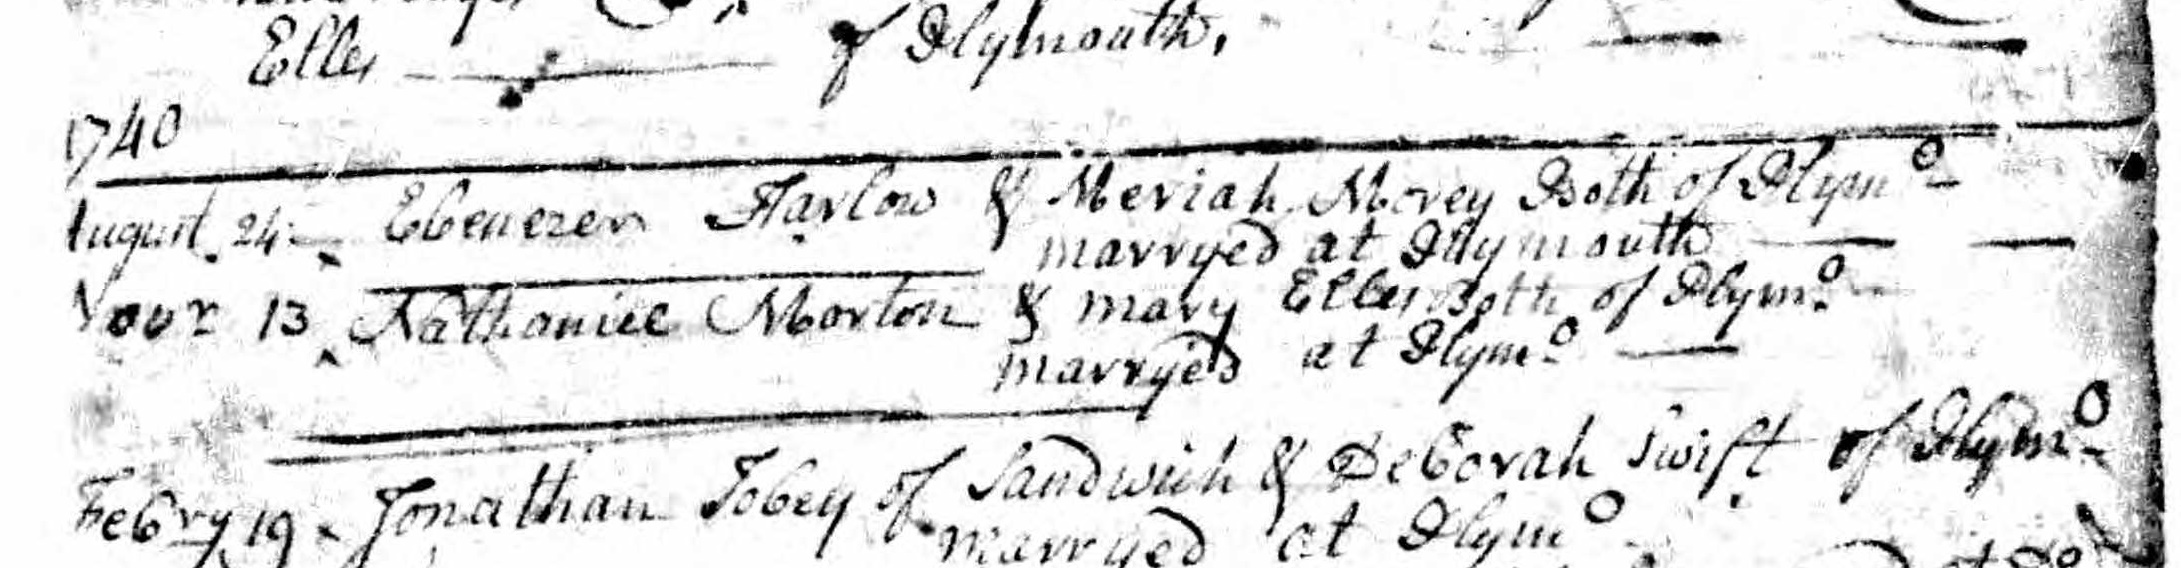 Elles of Plymouth,
1740
August. 24. Ebenezer Harlow & Meriah Morey Both of Plymo
marryed at Plymouth
Novr 13 Nathaniel Morton & mary Elles Both of Plymo
marryed at Plymo
Febry 19 Jonathan Tobey of Sandwich & Deborah Swift of Plymo
marryed at Plymo